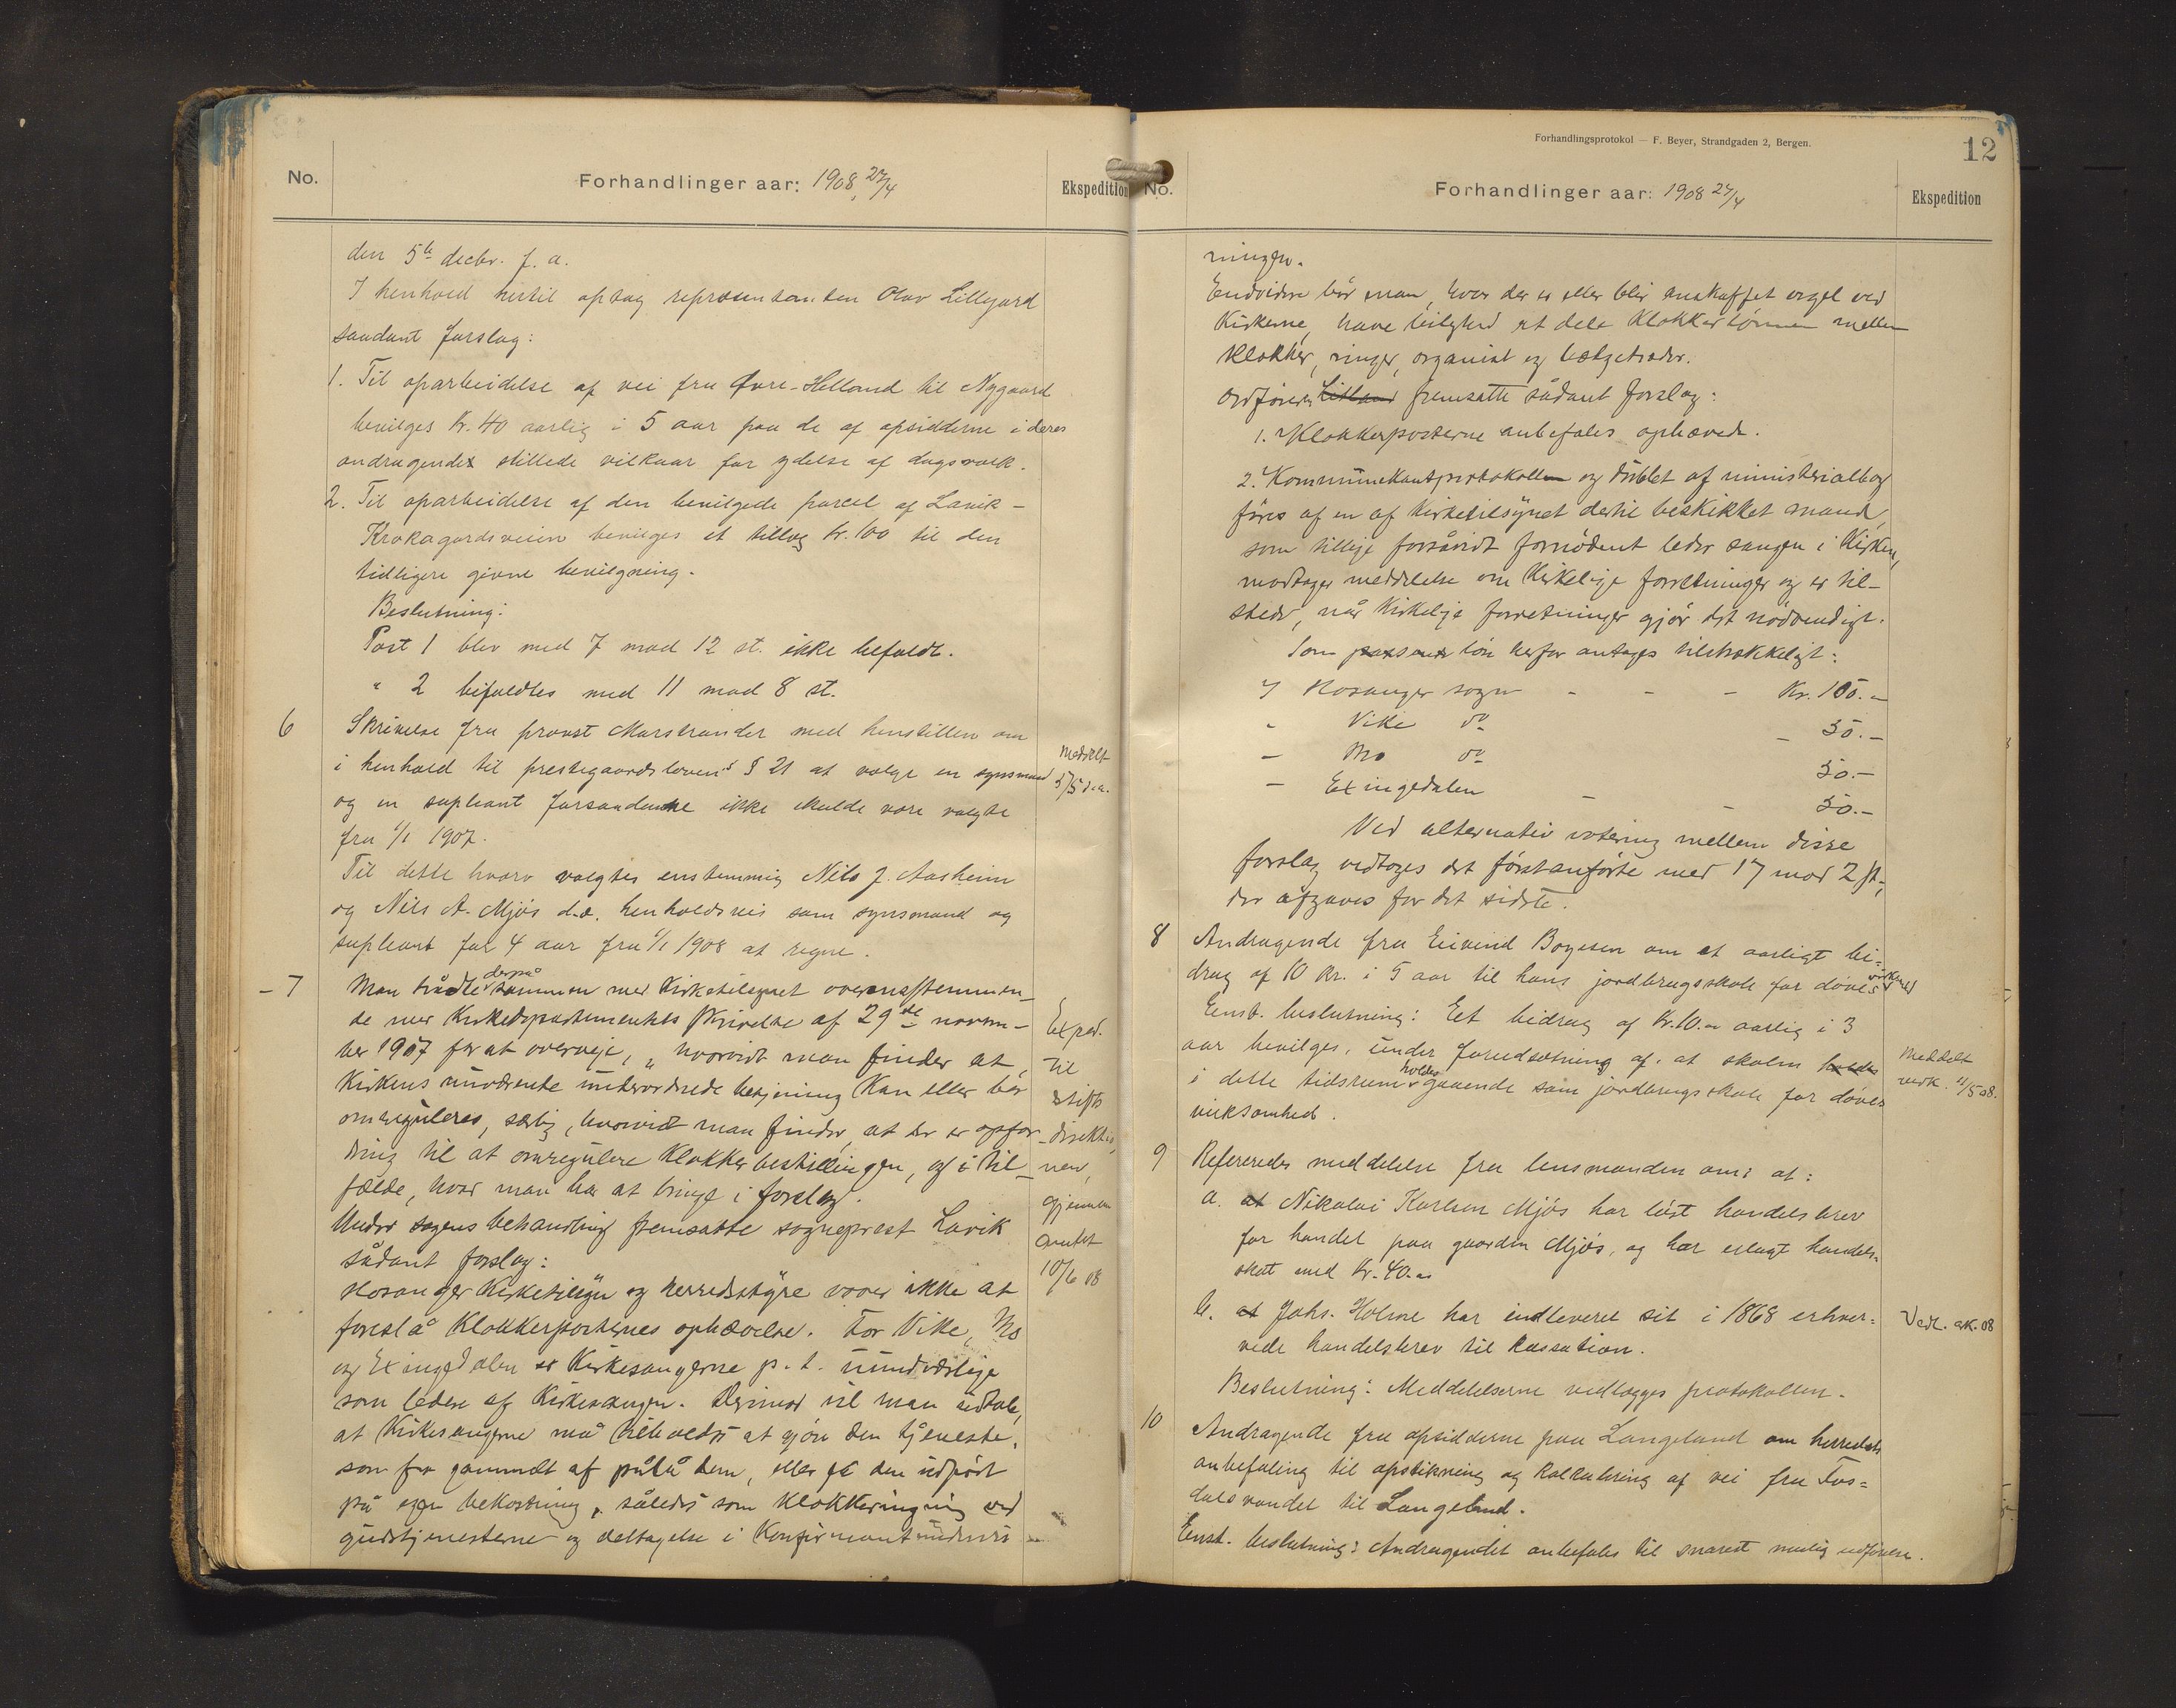 No.
Forhandlinger aar: 1908, 27/4
Ekspedition
den 5te decbr. f. a.
I henhold hertil optog repræsentanten Olav Lillejord
saadant forslag:
1. Til oparbeidelse af vei fra Øvre-Helland til Nygaard
bevilges kr. 40 aarlig i 5 aar paa de af opsidderne i deres
andragende stillede vilkaar for ydelse af dagsværk.
2. Til oparbeidelse af den bevilgede parcel af Lavik-
Krokagardsveien bevilges et tillæg kr. 100 til den
tidligere givne bevilgning.
Beslutning:
Post 1 blev med 7 mod 12 st. ikke bifaldt.
" 2 bifaldtes med 11 mod 8 st.
6 Skrivelse fra provst Marstrander med henstillen om
i henhold til prestegaardsloven's § 21 at vælge en synsmand
og en supleant forsaadanne ikke skulde være valgte
fra 1/1 1907.
Til dette hverv valgtes enstemmig Nils J. Aasheim
og Nils A. Mjøs d.æ. henholdsvis som synsmand og
supleant for 4 aar fra 1/1 1908 at regne.
Meddelt
5/5 d.a.
- 7 Man trådte derpå sammen med Kirketilsynet overensstemmen-
de med Kirkedepartementets skrivelse af 29de novem-
ber 1907 for at overveje, "hvorvidt man finder at
Kirkens nuværende underordnede betjening kan eller bør
omreguleres, særlig, hvorvidt man finder, at der er opfor-
dring til at omregulere Klokkerbestillingen, og i til-
fælde, hvad man har at bringe i forslag.
Under sagens behandling fremsatte sogneprest Lavik
sådant forslag:
Hosanger Kirketilsyn og herredsstyre vover ikke at
foreslå Klokkerposternes ophævelse. For Vike, Mo
og Exingedalen er Kirkesangerne p. t. uundværlige
som ledere af Kirkesangen. Derimod vil man udtale,
at Kirkesangerne må tilholdes at gjøre den tjeneste,
som fra gammelt af påla dem, eller få den udført
på egen bekostning, således som Klokkeringning ved
gudstjenesterne og deltagelse i Konfirmantundervis-
Exped.
til
stifts
direktio
nen,
gjennem
amtet
10/6 08
Forhandlingsprotokol — F. Beyer, Strandgaden 2, Bergen.
12
No.
Forhandlinger aar: 1908 27/4
Ekspedition
ningen.
Endvidere bør man, hvor der er eller blir anskaffet orgel ved
Kirkerne, have leilighed at dele Klokkerlønnen mellem
klokker, ringer, organist og bælgetræder.
Ordfører Lisland fremsatte sådant forslag:
1. Klokkerposterne anbefales ophævede.
2. Kommunikantprotokollen og dublet af ministerialbog
føres af en af kirketilsynet dertil beskikket mand,
som tillige forsåvidt fornødent leder sangen i Kirken,
modtager meddelelse om kirkelige forretninger og er til-
stede, når kirkelige forretninger gjør det nødvendigt.
Som passende løn herfor antages tilstrækkeligt:
I Hosanger sogn - - - Kr. 100.-
- Vike do - 50.-
- Mo do 50.-
- Exingedalen - - 50.-
Ved alternativ votering mellem disse
forslag vedtoges det førstanførte med 17 mod 2 st.,
der afgaves for det sidste.
8 Andragende fra Eivind Boyesen om et aarligt bi-
drag af 10 kr. i 5 aar til hans jordbrugsskole for døves virksomhed
Enst. beslutning: Et bidrag af kr. 10.- aarlig i 3
aar bevilges, under forudsætning af, at skolen holdes
i dette tidsrum holdes gaaende som jordbrugsskole for døves
virksomhed.
Meddelt
vedk. 11/5 08.
9 Refereredes meddelelse fra lensmanden om: at:
a. at Nikolai Karlsen Mjøs har løst handelsbrev
for handel paa gaarden Mjøs, og har erlagt handels-
skat med kr. 40.-
b. at Johs. Holme har indleveret sit i 1868 erhver-
vede handelsbrev til kassation.
Vedl. ark. 08
Beslutning: Meddelelserne vedlægges protokollen.
10 Andragende fra opsidderne paa Langeland om herredets
anbefaling til opstikning og kalkulering af vei fra Fos-
dalsvandet til Langeland.
Enst. beslutning: Andragendet anbefales til snarest mulig udførelse.